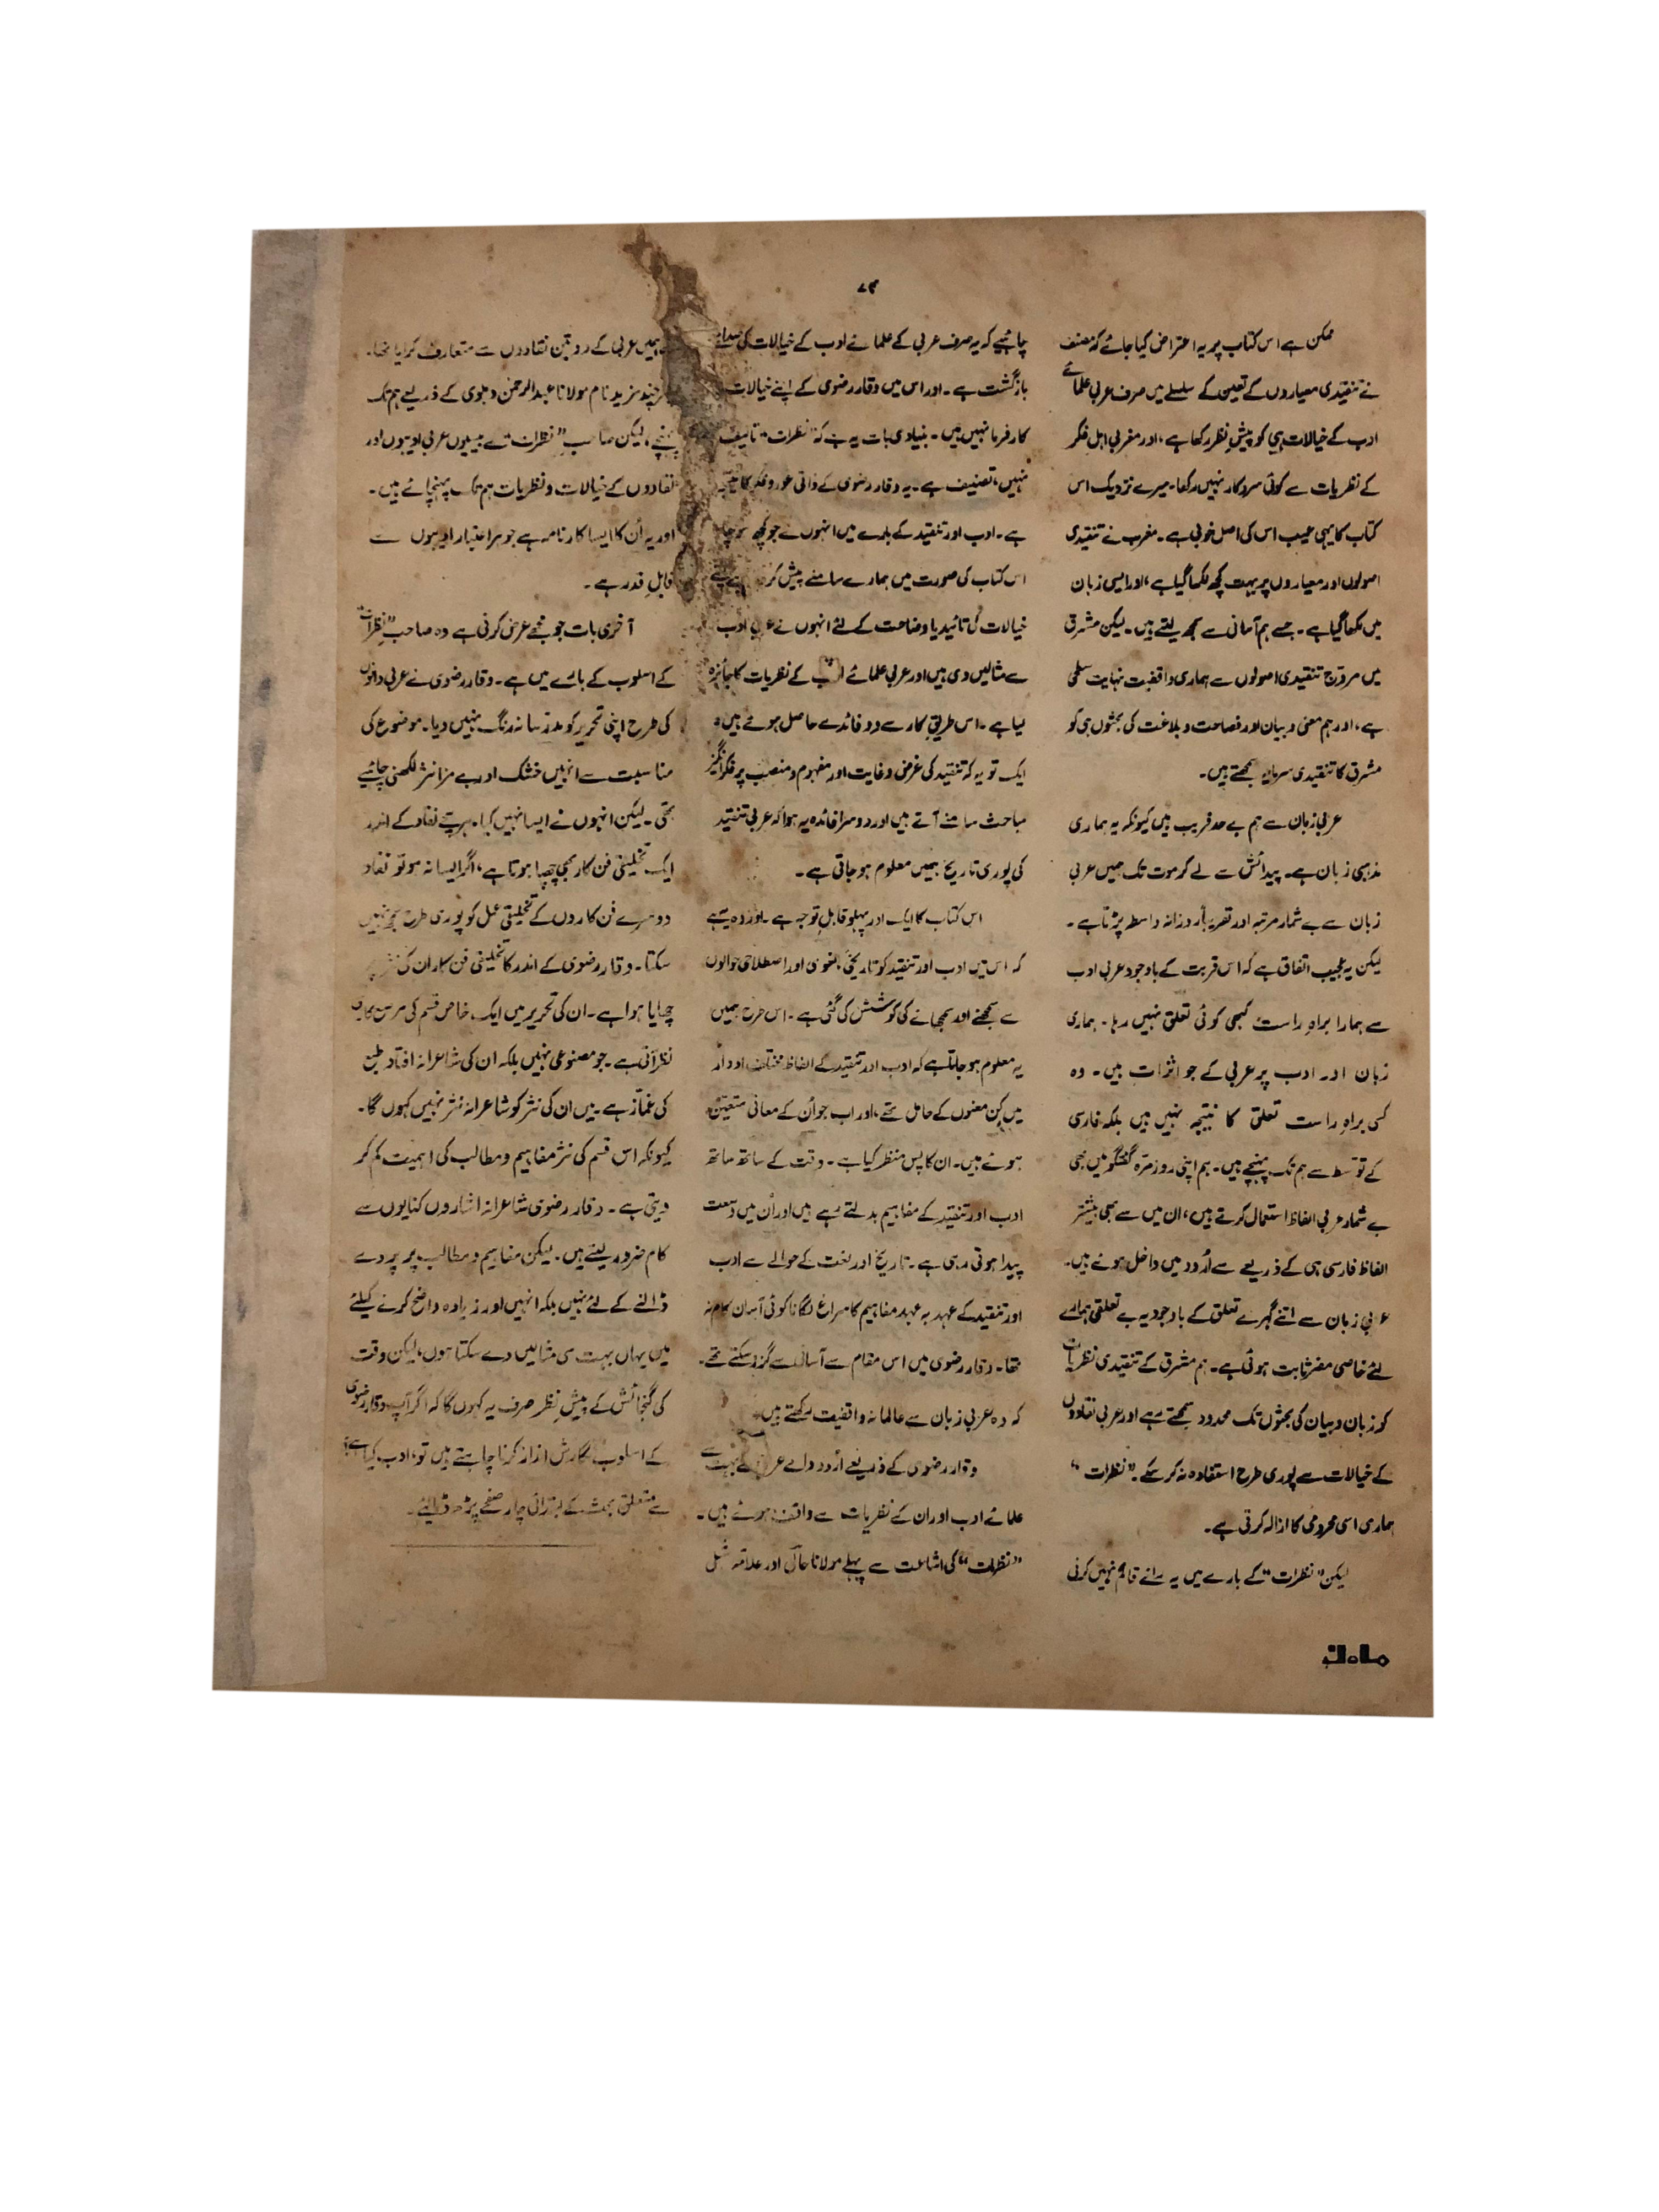 ۷۳
ممکن ہے اس کتاب پر یہ اعتراض کیا جائے کہ مصنف
نے تنقیدی معیاروں کے تعین کے سلسلے میں صرف عربی علمائے
ادب کے خیالات ہی کو پیشِ نظر رکھا ہے، اور مغربی اہلِ فکر
کے نظریات سے کوئی سروکار نہیں رکھا۔ میرے نزدیک اس
کتاب کا یہی عیب اس کی اصل خوبی ہے۔ مغرب نے تنقیدی
اصولوں اور معیاروں پر بہت کچھ لکھا گیا ہے، اور ایسی زبان
میں لکھا گیا ہے۔ جسے ہم آسانی سے سمجھ لیتے ہیں۔ لیکن مشرق
میں مروّج تنقیدی اصولوں سے ہماری واقفیت نہایت سطحی
ہے، اور ہم معنی و بیان اور فصاحت و بلاغت کی بحثوں ہی کو
مشرق کا تنقیدی سرمایہ سمجھتے ہیں۔
عربی زبان سے ہم بے حد قریب ہیں کیونکہ یہ ہماری
مذہبی زبان ہے۔ پیدائش سے لے کر موت تک ہمیں عربی
زبان سے بے شمار مرتبہ اور تقریباً روزانہ واسطہ پڑتا ہے۔
لیکن یہ عجیب اتفاق ہے کہ اس قربت کے باوجود عربی ادب
سے ہمارا براہِ راست کبھی کوئی تعلق نہیں رہا۔ ہماری
زبان اور ادب پر عربی کے جو اثرات ہیں۔ وہ
کسی براہِ راست تعلق کا نتیجہ نہیں ہیں بلکہ فارسی
کے توسّط سے ہم تک پہنچے ہیں۔ ہم اپنی روزمرّہ گفتگو میں بھی
بے شمار عربی الفاظ استعمال کرتے ہیں، ان میں سے بھی بیشتر
الفاظ فارسی ہی کے ذریعے سے اُردو میں داخل ہوئے ہیں۔
عربی زبان سے اتنے گہرے تعلق کے باوجود یہ بے تعلقی ہمارے
لئے خاصی مضر ثابت ہوئی ہے۔ ہم مشرق کے تنقیدی نظریات
کو زبان و بیان کی بحثوں تک محدود سمجھتے رہے اور عربی نقادوں
کے خیالات سے پوری طرح استفادہ نہ کر سکے۔ "نظرات"
ہماری اسی محرومی کا ازالہ کرتی ہے۔
لیکن "نظرات" کے بارے میں یہ رائے قائم نہیں کرنی
چاہیے کہ یہ صرف عربی کے علمائے ادب کے خیالات کی صدائے
بازگشت ہے۔ اور اس میں وقار رضوی کے اپنے خیالات
کارفرما نہیں ہیں۔ بنیادی بات یہ ہے کہ "نظرات" تالیف
نہیں، تصنیف ہے۔ یہ وقار رضوی کے ذاتی غور و فکر کا نتیجہ
ہے۔ ادب اور تنقید کے بارے میں انہوں نے جو کچھ سوچا
اس کتاب کی صورت میں ہمارے سامنے پیش کر ہے اپنے
خیالات کی تائید یا وضاحت کے لئے انہوں نے عربی ادب
سے مثالیں دی ہیں اور عربی علمائے ادب کے نظریات کا جائزہ
لیا ہے۔ اس طریقِ کار سے دو فائدے حاصل ہوئے ہیں،
ایک تو یہ کہ تنقید کی غرض و غایت اور مفہوم و منصب پر فکر انگیز
مباحث سامنے آتے ہیں اور دوسرا فائدہ یہ ہوا کہ عربی تنقید
کی پوری تاریخ ہمیں معلوم ہو جاتی ہے۔
اس کتاب کا ایک اور پہلو قابلِ توجہ ہے۔ اور وہ یہ ہے
کہ اس میں ادب اور تنقید کو تاریخی، لغوی اور اصطلاحی حوالوں
سے سمجھنے اور سمجھانے کی کوشش کی گئی ہے۔ اس طرح ہمیں
یہ معلوم ہو جاتا ہے کہ ادب اور تنقید کے الفاظ مختلف ادوار
میں کِن معنوں کے حامل تھے، اور اب جو اُن کے معانی متعیّن
ہوئے ہیں۔ ان کا پس منظر کیا ہے۔ وقت کے ساتھ ساتھ
ادب اور تنقید کے مفاہیم بدلتے رہے ہیں اور اُن میں وسعت
پیدا ہوتی رہی ہے۔ تاریخ اور لغت کے حوالے سے ادب
اور تنقید کے عہد بہ عہد مفاہیم کا سراغ لگانا کوئی آسان کام نہ
تھا۔ وقار رضوی میں اس مقام سے آسانی سے گزر سکتے تھے۔
کہ وہ عربی زبان سے عالمانہ واقفیت رکھتے ہیں۔
وقار رضوی کے ذریعے اُردو والے عربی کے بہت سے
علمائے ادب اور ان کے نظریات سے واقف ہوئے ہیں۔
"نظرات" کی اشاعت سے پہلے مولانا حالی اور علامہ شبلی
ہمیں عربی کے دو تین نقادوں سے متعارف کرایا تھا۔
چند مزید نام مولانا عبدالرحمٰن دہلوی کے ذریعے ہم تک
پہنچے، لیکن صاحبِ "نظرات" نے بیسیوں عربی ادیبوں اور
نقادوں کے خیالات و نظریات ہم تک پہنچائے ہیں۔
اور یہ اُن کا ایسا کارنامہ ہے جو ہر اعتبار سے
قابلِ قدر ہے۔
آخری بات جو مجھے عرض کرنی ہے وہ صاحبِ "نظرات"
کے اسلوب کے بارے میں ہے۔ وقار رضوی نے عربی دانوں
کی طرح اپنی تحریر کو مدرّسانہ رنگ نہیں دیا۔ موضوع کی
مناسبت سے انہیں خشک اور بے مزا نثر لکھنی چاہیے
تھی۔ لیکن انہوں نے ایسا نہیں کیا۔ ہر سچے نقاد کے اندر
ایک تخلیقی فن کار بھی چھپا ہوتا ہے، اگر ایسا نہ ہو تو نقاد
دوسرے فن کاروں کے تخلیقی عمل کو پوری طرح سمجھ نہیں
سکتا۔ وقار رضوی کے اندر کا تخلیقی فن کار ان کی نثر پر
چھایا ہوا ہے۔ ان کی تحریر میں ایک خاص قسم کی مرصّع کاری
نظر آتی ہے۔ جو مصنوعی نہیں بلکہ ان کی شاعرانہ افتادِ طبع
کی غمّاز ہے۔ میں ان کی نثر کو شاعرانہ نثر نہیں کہوں گا۔
کیونکہ اس قسم کی نثر مفاہیم و مطالب کی اہمیت کم کر
دیتی ہے۔ وقار رضوی شاعرانہ اشاروں کنایوں سے
کام ضرور لیتے ہیں۔ لیکن مفاہیم و مطالب پر پردے
ڈالنے کے لئے نہیں بلکہ انہیں اور زیادہ واضح کرنے کیلئے
میں یہاں بہت سی مثالیں دے سکتا ہوں، لیکن وقت
کی گنجائش کے پیشِ نظر صرف یہ کہوں گا کہ اگر آپ وقار رضوی
کے اسلوبِ نگارش ازاز کرنا چاہتے ہیں تو، ادب کیا ہے؟
سے متعلق بحث کے ابتدائی چار صفحے پڑھ ڈالیئے۔
ماہِ نو